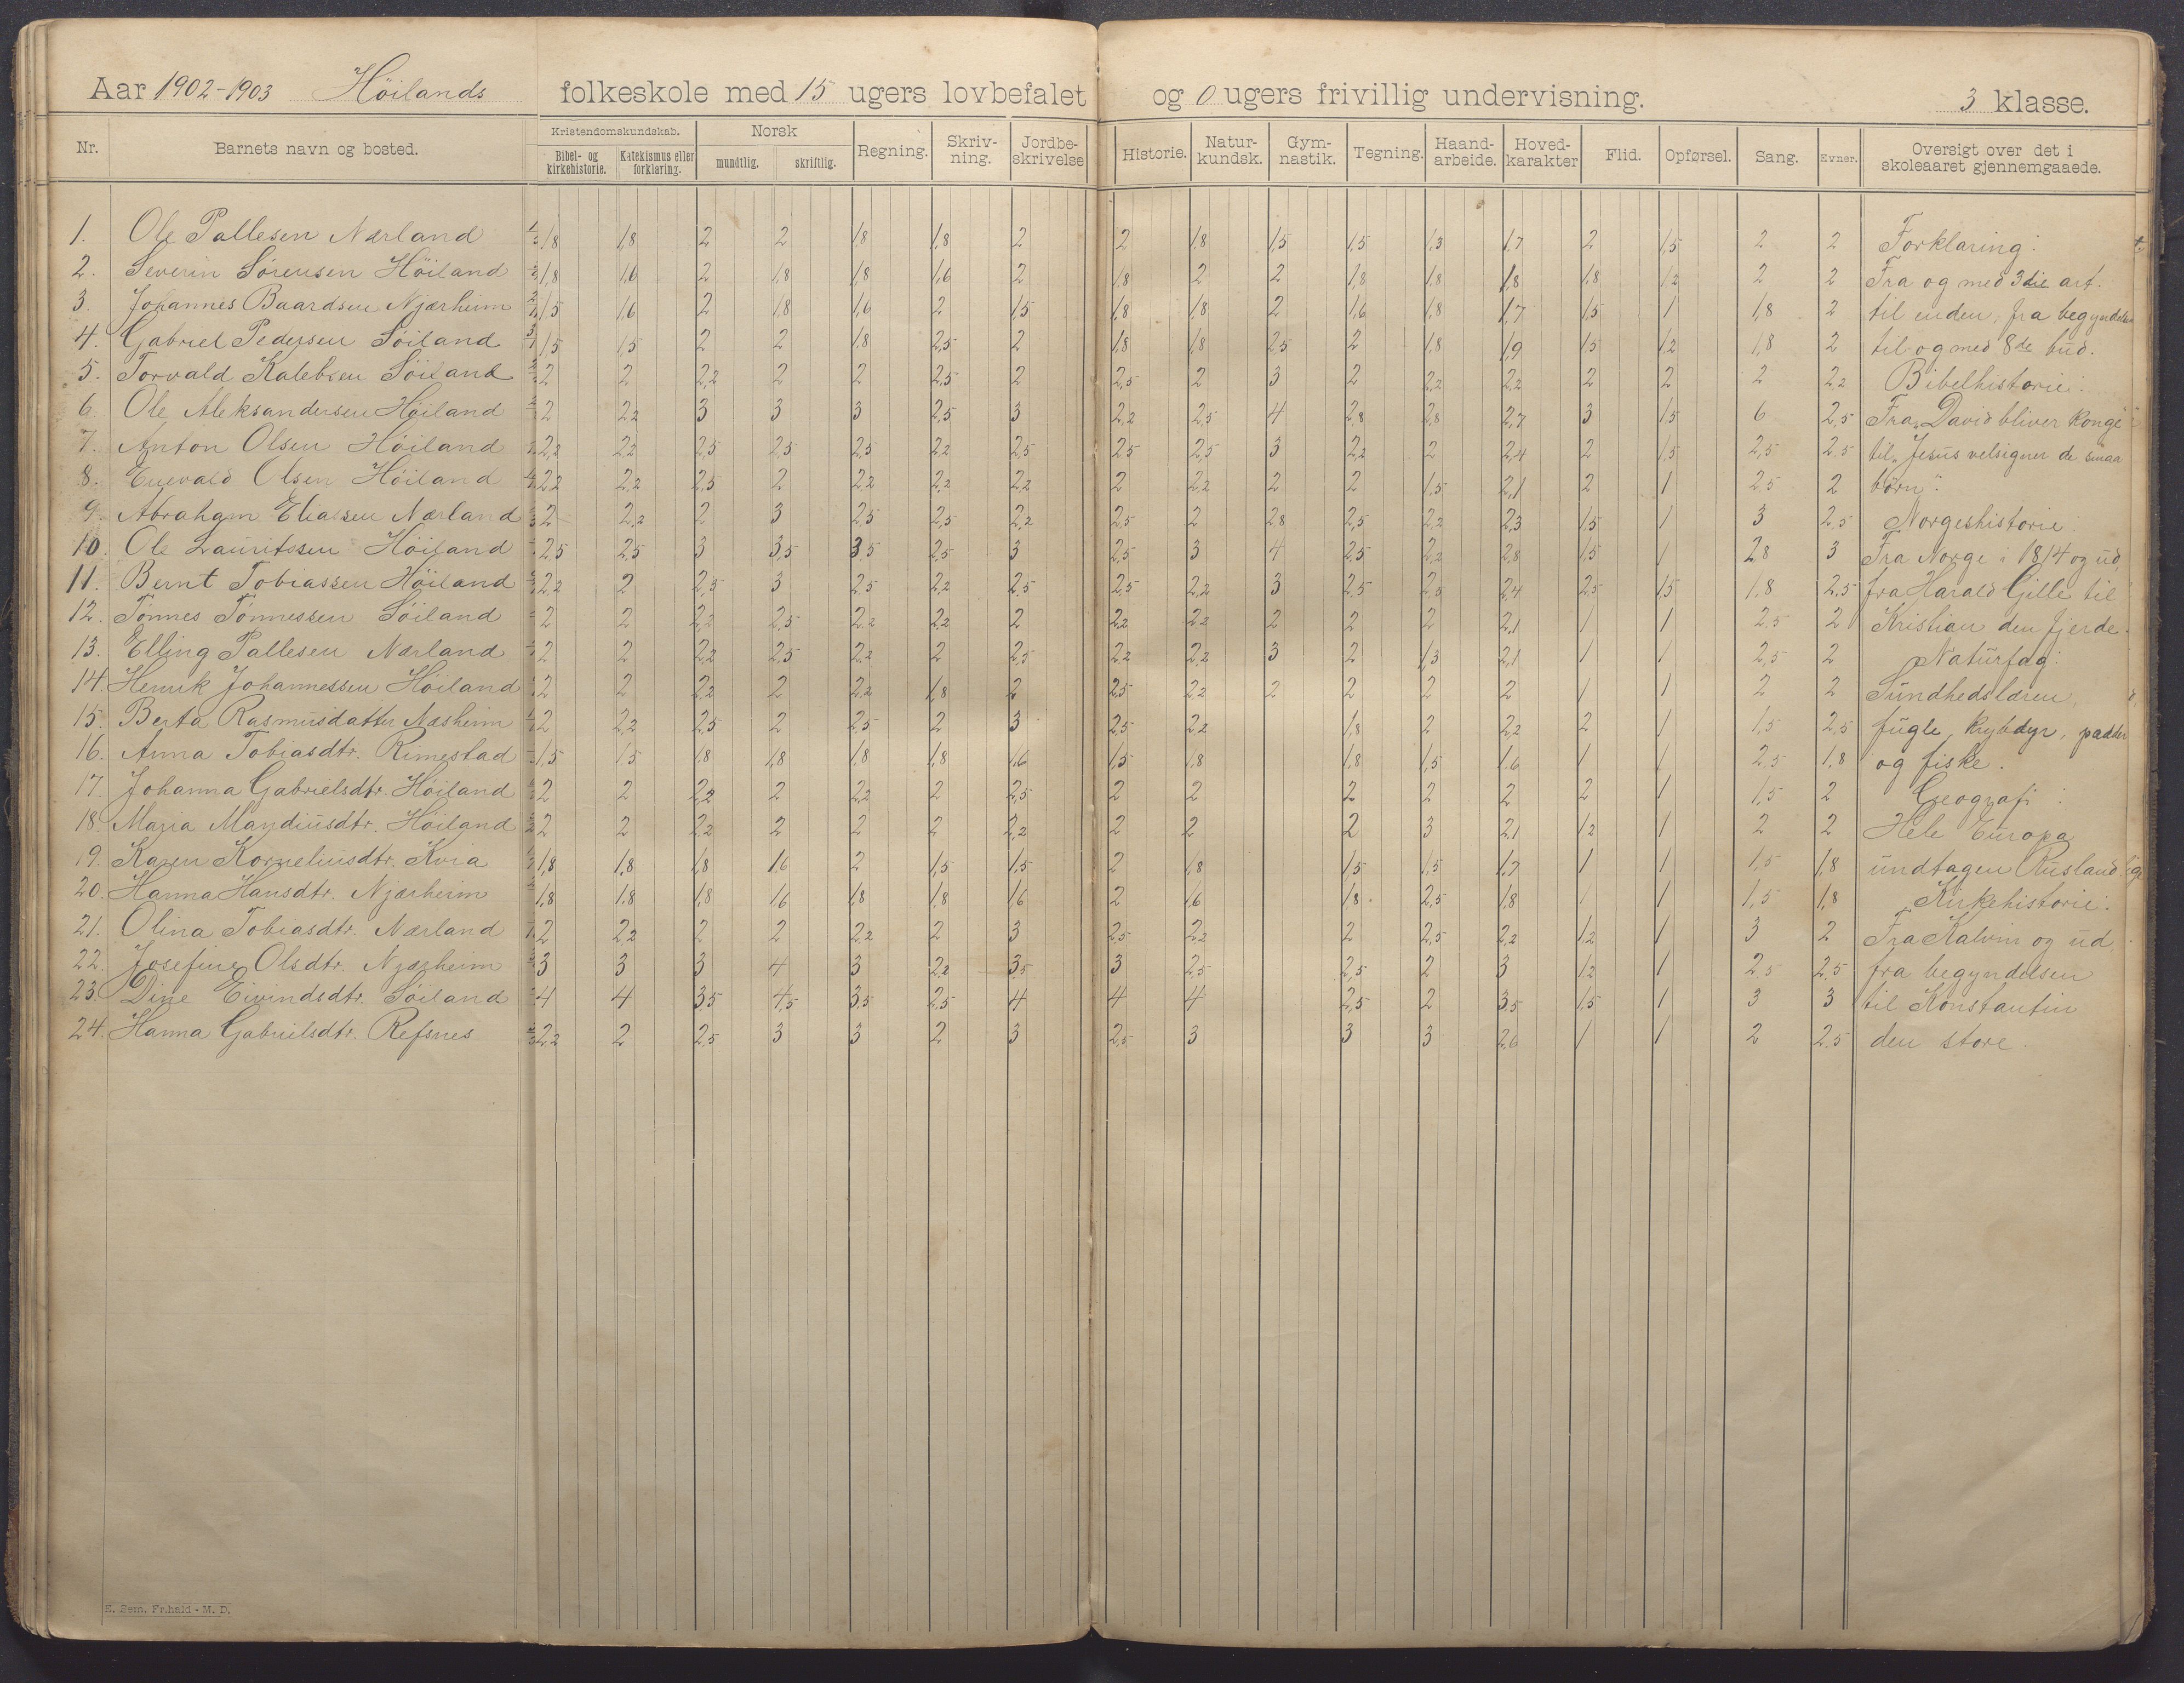 Aar 1902-1903 Höilands folkeskole med 15 ugers lovbefalet og 0 ugers frivillig undervisning. 3 klasse.
Nr. Barnets navn og bosted. Kristendomskundskab. Bibel- og kirkehistorie. Katekismus eller forklaring. Norsk mundtlig. skriftlig. Regning. Skriv-ning. Jordbe-skrivelse Historie. Natur-kundsk. Gym-nastik. Tegning. Haand-arbeide. Hoved-karakter Flid. Opførsel. Sang. Evner. Oversigt over det i skoleaaret gjennemgaaede.
1. Ole Pallesen Nærland 1,8 1,8 2 2 1,8 1,8 2 2 1,8 1,5 1,5 1,3 1,7 2 1,5 2 2 Forklaring:
2. Severin Sörensen Höiland 1,8 1,6 2 1,8 1,8 1,6 2 1,8 2 2 1,8 1,8 1,8 1,8 1,2 2 2 Fra og med 3die art.
3. Johannes Baardsen Njærheim 1,5 1,6 2 1,8 1,6 2 1,5 1,8 1,8 2 1,6 1,8 1,7 1,5 1 1,8 2 til enden, fra begyndelsen
4. Gabriel Pedersen Söiland 1,5 1,5 2 2 1,8 2,5 2 1,8 1,8 2,5 2 1,8 1,9 1,5 1,2 1,8 2 til og med 8de bud.
5. Torvald Kalebsen Söiland 2 2 2,2 2 2 2,5 2 2,5 2 3 2 2,2 2,2 2 2 2 2,2 Bibelhistorie:
6. Ole Aleksandersen Höiland 2 2,2 3 3 3 2,5 3 2,2 2,5 4 2,8 2,8 2,7 3 1,5 6 2,5 Fra „David bliver konge"
7. Anton Olsen Höiland 2,2 2,2 2,5 2,5 2,5 2,2 2,5 2,5 2,5 3 2,2 2 2,4 2 1,5 2,5 2,5 til „Jesus velsigner de smaa
8. Enevald Olsen Höiland 2,2 2,2 2,5 2 2,2 2,2 2,2 2 2,2 2 2 1,5 2,1 2 1 2,5 2 börn".
9. Abraham Eliassen Nærland 2 2,2 2 3 2,5 2,5 2,2 2,5 2 2,8 2,5 2,2 2,3 1,5 1 3 2,5 Norgeshistorie:
10. Ole Lauritssen Höiland 2,5 2,5 3 3,5 3,5 2,5 3 2,5 3 4 2,5 2,2 2,8 1,5 1 2,8 3 Fra Norge i 1814 og ud,
11. Bernt Tobiassen Höiland 2,2 2 2,5 3 2,5 2,2 2,5 2,5 2,2 3 2,5 2,5 2,4 2,5 1,5 1,8 2,5 fra Harald Gille til
12. Tönnes Tönnessen Söiland 2 2 2,2 2,5 2,2 2,2 2 2,2 2,2 2 2 2 2,1 1 1 2,5 2 Kristian den fjerde.
13. Elling Pallesen Nærland 2 2 2,2 2,5 2,2 2 2,5 2,2 2,2 3 2 1,3 2,1 1 1 2,5 2 Naturfag:
14. Henrik Johannessen Höiland 2 2 2,2 2 2,2 1,8 2 2,5 2,2 2 2 2 2 1 1 2 2 Sundhedslæren,
15. Berta Rasmusdatter Næsheim 2 2,2 2,5 2 2,5 2 3 2,5 2,2 1,8 2 2,2 2 1 1,5 2,5 fugle, krybdyr, padder
16. Anna Tobiasdtr. Rimestad 1,5 1,5 1,8 1,8 1,8 1,8 1,6 1,5 1,8 1,8 1,5 1,6 1 1 2,5 1,8 og fiske.
17. Johanna Gabrielsdtr. Höiland 2 2 2,2 2 2,2 2 2,5 2 2 2 2 2 2 1 1,5 2 Geografi:
18. Maria Mandiusdtr. Höiland 2 2 2,2 2 2 2 2,2 2 2 2 3 2,1 1,2 1 2 2 Hele Europa
19. Karen Korneliusdtr. Kvia 1,8 1,8 1,8 1,6 2 1,5 1,5 2 1,8 1,5 1,5 1,7 1 1 1,5 1,8 undtagen Rusland.
20. Hanna Hansdtr. Njærheim 1,8 1,8 1,8 1,6 1,8 1,8 1,6 2 1,6 1,8 2,5 1,8 1 1 1,5 1,8 Kirkehistorie:
21. Olina Tobiasdtr. Nærland 2 2,2 2 2 2,2 2 3 2,5 2,2 2 2,5 2,2 1,2 1 3 2 Fra Kalvin og ud
22. Josefine Olsdtr. Njærheim 3 3 3 4 3 2,2 3,5 3 2,5 2,5 2 3 1,2 1 2,5 2,5 fra begyndelsen
23. Dine Eivindsdtr. Söiland 4 4 3,5 4,5 3,5 2,5 4 4 4 2,5 2 3,5 1,5 1 3 3 til Konstantin
24. Hanna Gabrielsdtr. Refsnes 2,2 2 2,5 3 3 2 3 2,5 3 3 3 2,6 1 1 2 2,5 den store.
E. Sem, Fr.hald - M. D.